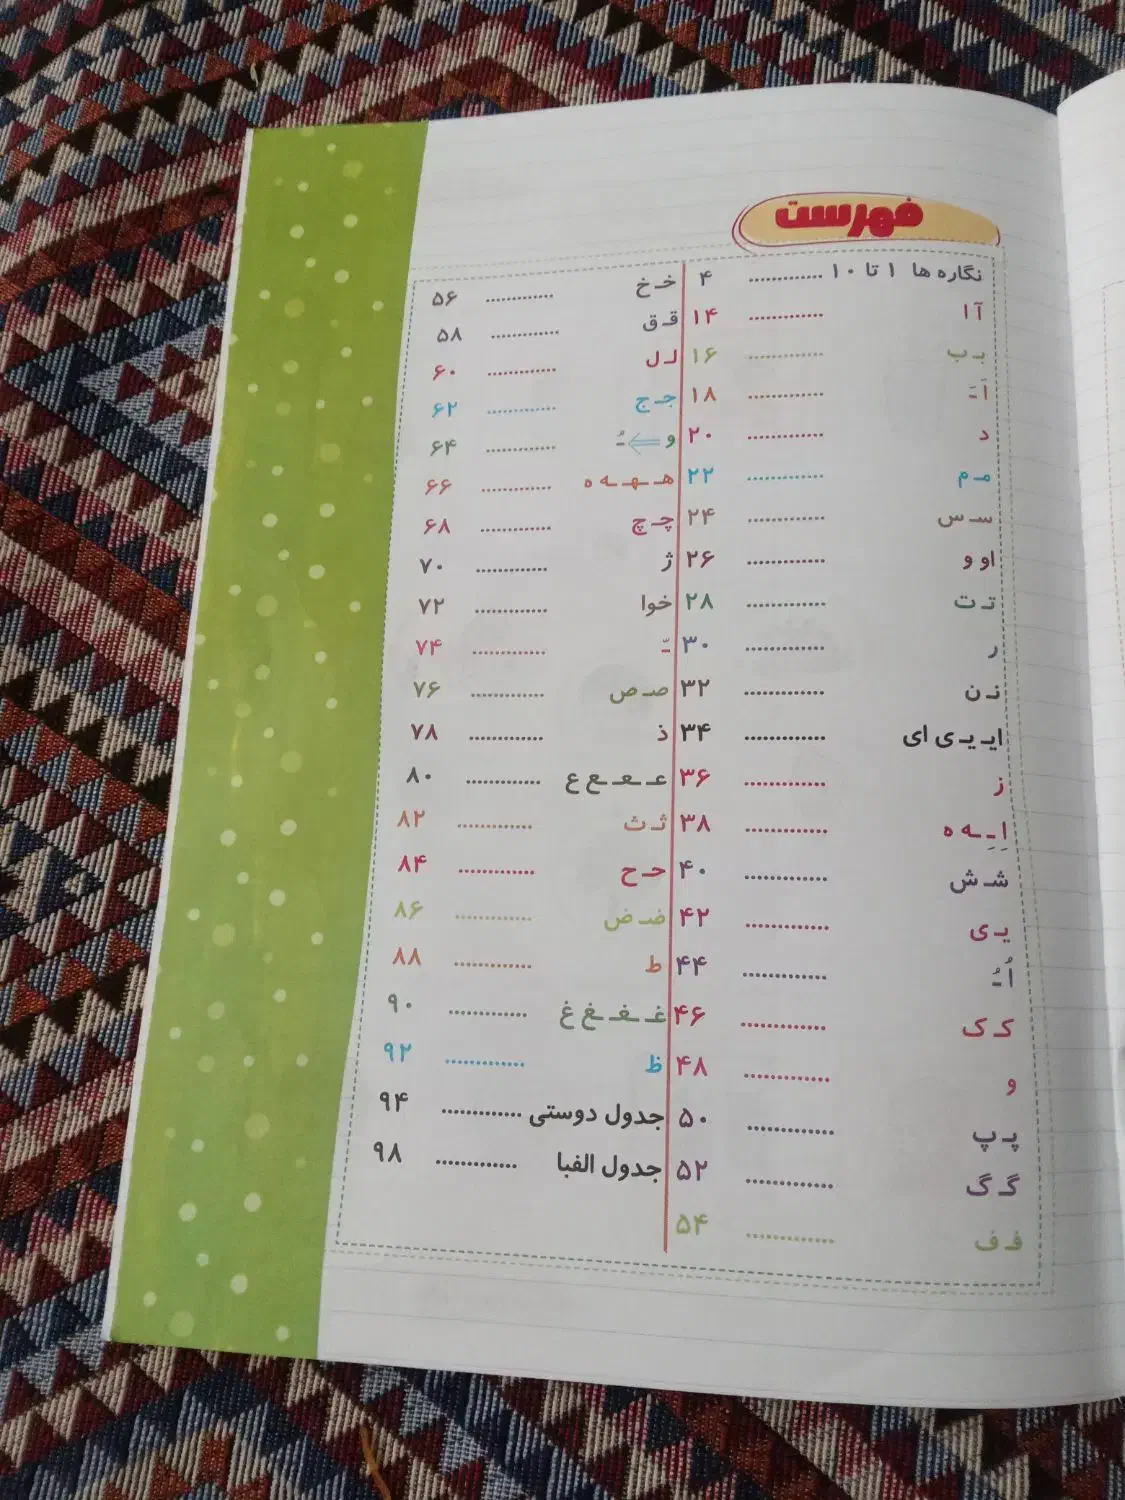 فهرست
نگاره ها ۱ تا ۱۰ ............ ۴
آ ا ............ ۱۴
بـ ب ............ ۱۶
اَ ـَ ............ ۱۸
د ............ ۲۰
مـ م ............ ۲۲
سـ س ............ ۲۴
او و ............ ۲۶
تـ ت ............ ۲۸
ر ............ ۳۰
نـ ن ............ ۳۲
ایـ یـ ی ای ............ ۳۴
ز ............ ۳۶
اِ ـِ ـه ه ............ ۳۸
شـ ش ............ ۴۰
یـ ی ............ ۴۲
اُ ـُ ............ ۴۴
کـ ک ............ ۴۶
و ............ ۴۸
پـ پ ............ ۵۰
گـ گ ............ ۵۲
فـ ف ............ ۵۴
خـ خ ............ ۵۶
قـ ق ............ ۵۸
لـ ل ............ ۶۰
جـ ج ............ ۶۲
و ⇐ ـُ ............ ۶۴
هـ ـهـ ـه ه ............ ۶۶
چـ چ ............ ۶۸
ژ ............ ۷۰
خوا ............ ۷۲
ـّ ............ ۷۴
صـ ص ............ ۷۶
ذ ............ ۷۸
عـ ـعـ ـع ع ............ ۸۰
ثـ ث ............ ۸۲
حـ ح ............ ۸۴
ضـ ض ............ ۸۶
ط ............ ۸۸
غـ ـغـ ـغ غ ............ ۹۰
ظ ............ ۹۲
جدول دوستی ............ ۹۴
جدول الفبا ............ ۹۸